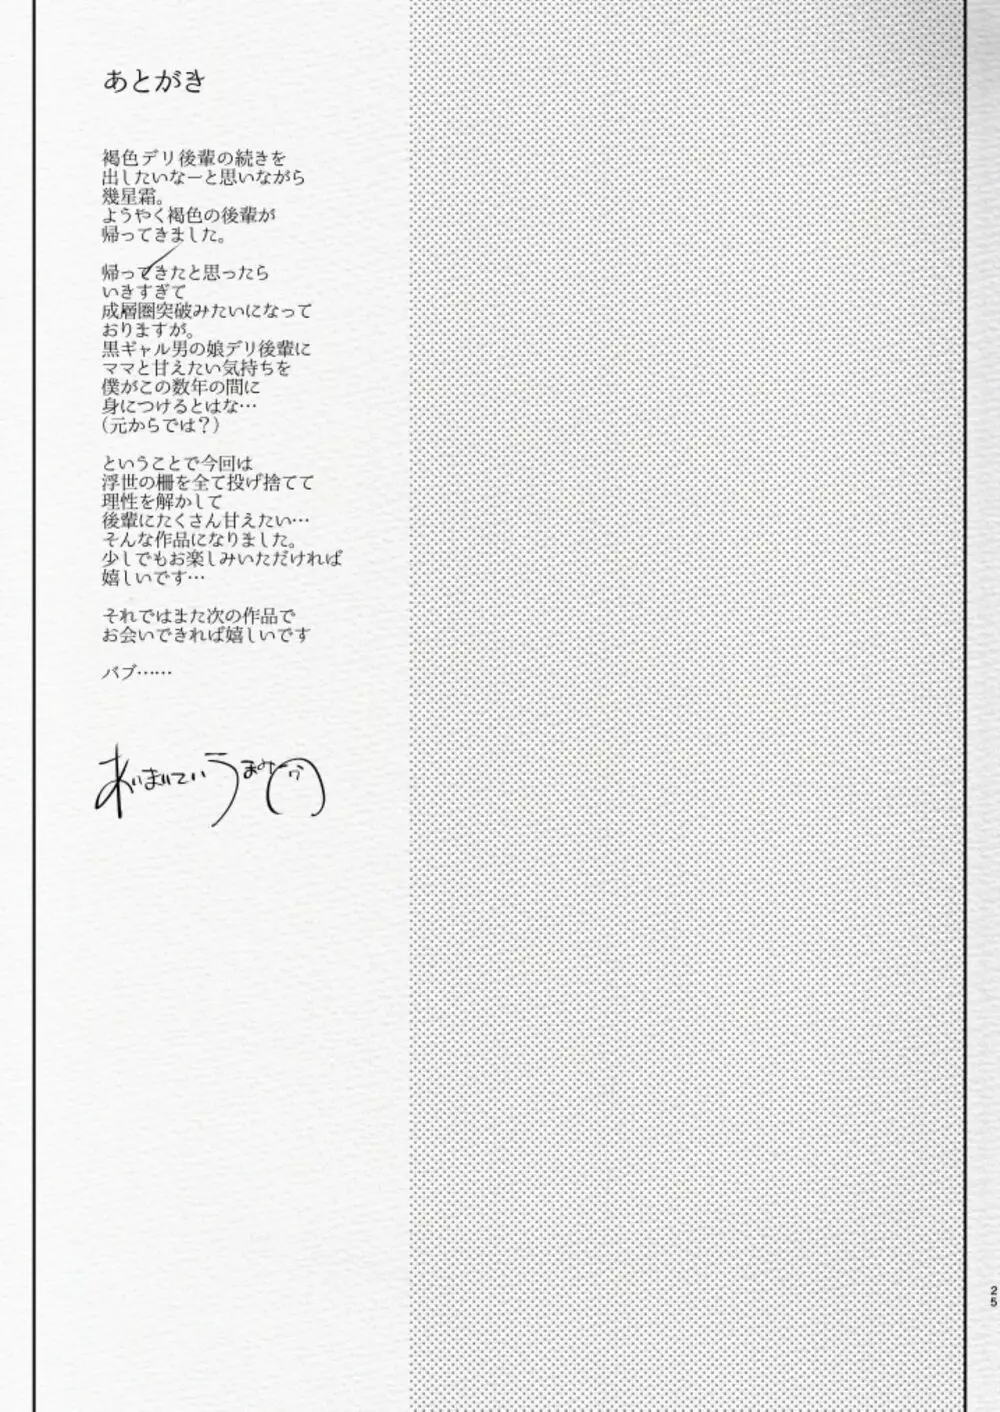 あとがき
褐色デリ後輩の続きを
出したいなーと思いながら
幾星霜。
ようやく褐色の後輩が
帰ってきました。
帰ってきたと思ったら
いきすぎて
成層圏突破みたいになって
おりますが。
黒ギャル男の娘デリ後輩に
ママと甘えたい気持ちを
僕がこの数年の間に
身につけるとはな…
(元からでは？)
ということで今回は
浮世の柵を全て投げ捨てて
理性を解かして
後輩にたくさん甘えたい…
そんな作品になりました。
少しでもお楽しみいただければ
嬉しいです…
それではまた次の作品で
お会いできれば嬉しいです
バブ……
25